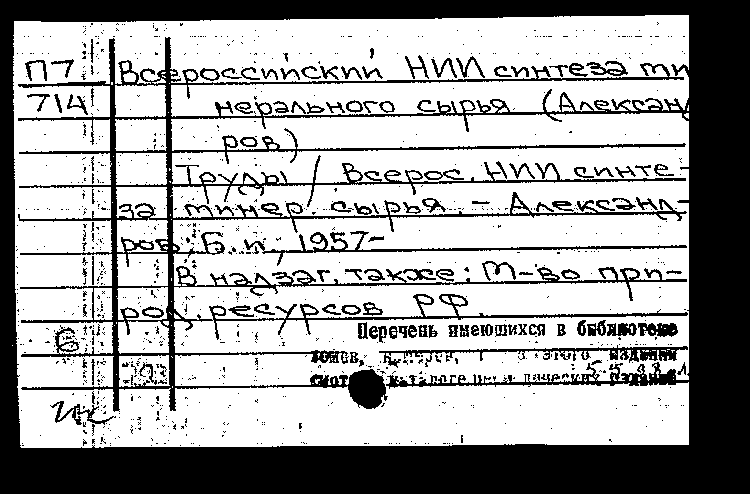 П7 Всероссийский НИИ синтеза ми
714 нерального сырья (Александ
ров)
Труды / Всерос. НИИ синте-
за минер. сырья. - Александ-
ров: Б. и., 1957-
В надзаг. также: М-во при-
род. ресурсов РФ.
Перечень имеющихся в библиотеке
томов, этого издания
смот каталоге издания